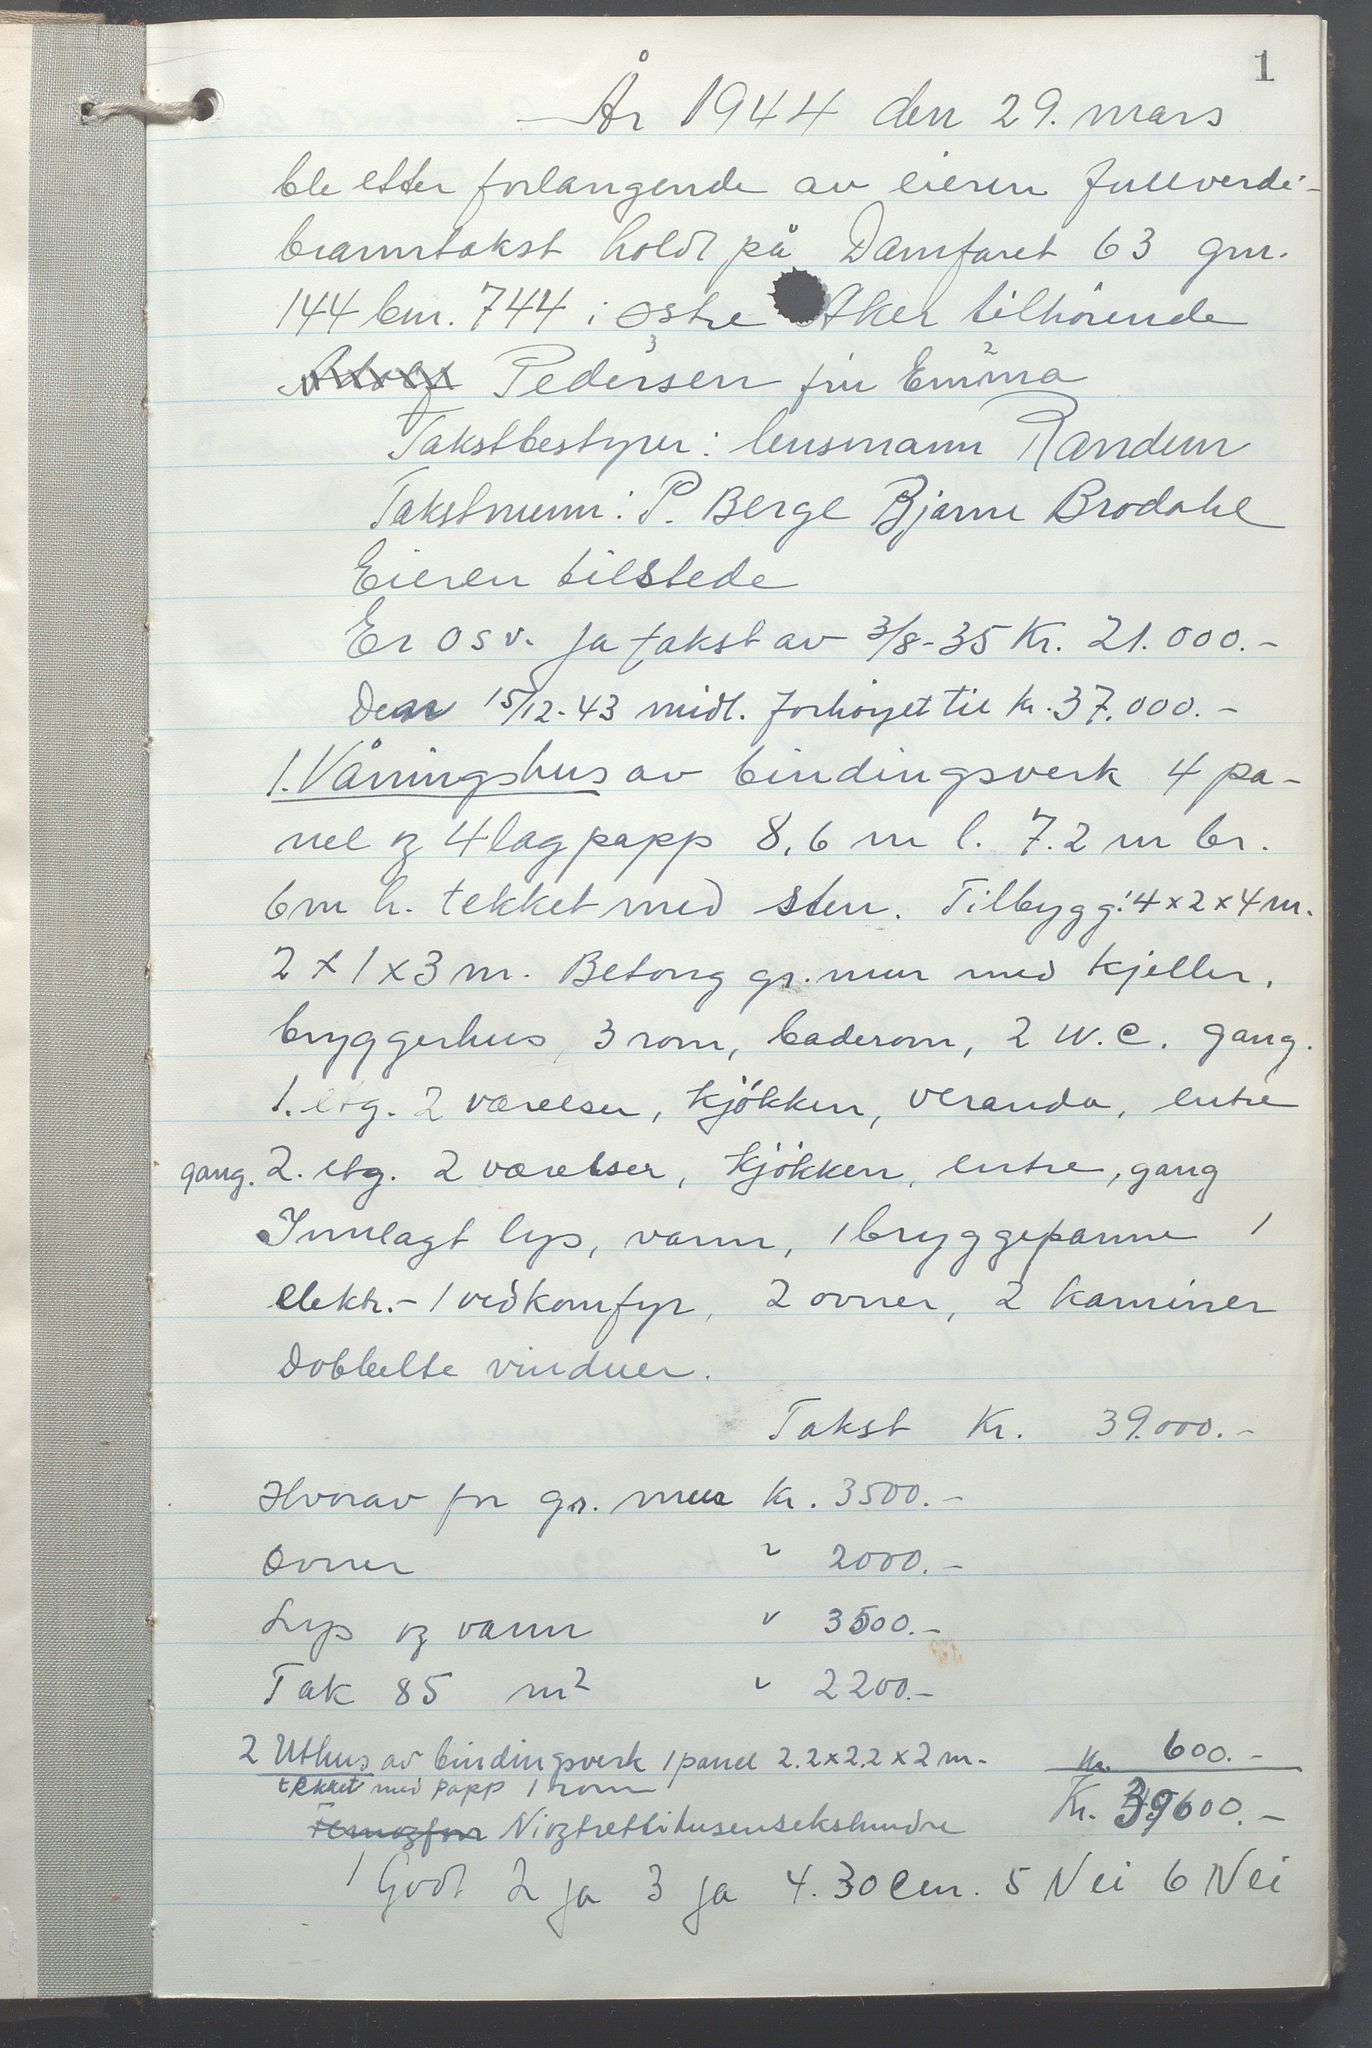 1
År 1944 den 29. mars
ble etter forlangende av eieren fullverdi-
branntakst holdt på Damfaret 63 gnr.
144 bnr. 744 i østre Aker tilhörende
Pedersen fru Emma
Takstbestyrer: lensmann Randem
Takstmenn: P. Berge Bjarne Brodahl
Eieren tilstede
Er osv. Ja takst av 3/8-35 Kr. 21.000.-
Den 15/12-43 midl. forhöyet til kr. 37.000.-
1. Våningshus av bindingsverk 4 pa-
nel og 4 lag papp 8,6 m l. 7.2 m br.
6 m h. tekket med sten. Tilbygg: 4 x 2 x 4 m.
2 x 1 x 3 m. Betong gr. mur med kjeller,
bryggerhus, 3 rom, baderom, 2 W.C. gang.
1. etg. 2 værelser, kjökken, veranda, entre
gang. 2. etg. 2 værelser, kjökken, entre, gang
Innlagt lys, vann, 1 bryggepanne 1
elektr.- 1 vedkomfyr, 2 ovner, 2 kaminer
Dobbelte vinduer.
Takst Kr. 39.000.-
Hvorav for gr. mur Kr. 3500.-
Ovner " 2000.-
Lys og vann " 3500.-
Tak 85 m² " 2200.-
2 Uthus av bindingsverk 1 panel 2.2 x 2.2 x 2 m. Kr. 600.-
tekket med papp 1 rom
Niogtrettitusensekshundre Kr. 39600.-
1 Godt 2 ja 3 ja 4. 30 cm. 5 Nei 6 Nei